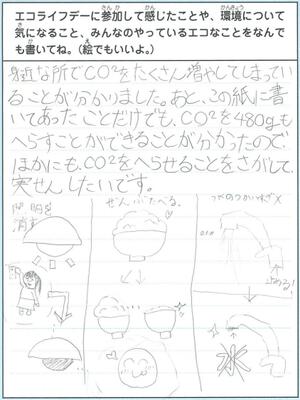 エコライフデーに参加して感じたことや、環境について
気になること、みんなのやっているエコなことをなんで
も書いてね。（絵でもいいよ。）
身近な所でCO2をたくさん増やしてしまってい
ることが分かりました。あと、この紙に書
いてあったことだけでも、CO2を480gも
へらすことができることが分かったので、
ほかにも、CO2をへらせることをさがして、
実せんしたいです。
照明を
消す
ぜんぶたべる。
止める！
水